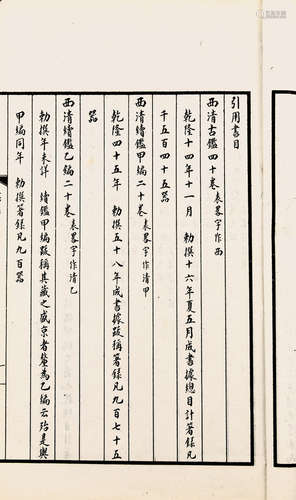 引用書目
西清古鑑四十卷 表畧字作西
乾隆十四年十一月 勅撰十六年夏五月成書據總目計著錄凡
千五百四十五器
西清續鑑甲編二十卷 表畧字作清甲
乾隆四十五年 勅撰五十八年成書據跋稱著錄凡九百七十五
器
西清續鑑乙編二十卷 表畧字作清乙
勅撰年未詳 續鑑甲編跋稱其藏之盛京者釐為乙編云殆是與
甲編同年 勅撰著錄凡九百器